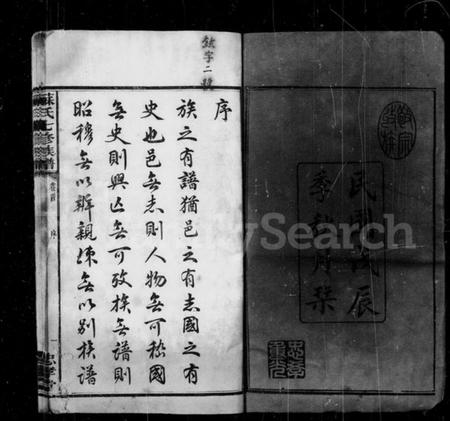 民國戊辰
季秋月梓
敘字二號
序
族之有譜猶邑之有志國之有
史也邑無志則人物無可稽國
無史則興亡無可攷族無譜則
昭穆無以辨親疎無以別族譜
蘇氏七修族譜
卷首
序
一
忠孝堂
FamilySearch